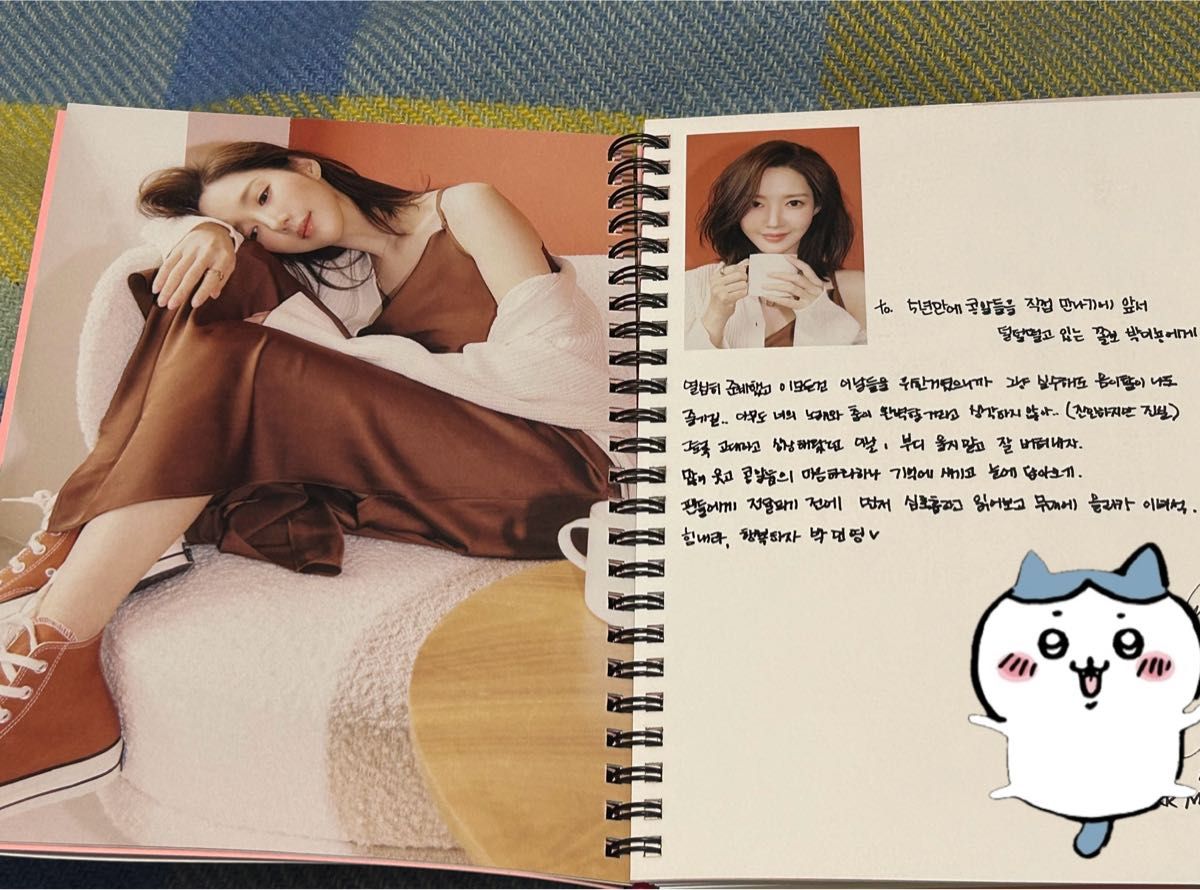 to. 5년만에 콩알들을 직접 만나기에 앞서
덜덜떨고 있는 쫄보 박미농에게
열심히 준비했고 이 모든건 이날들을 위한거였으니까 그냥 실수해도 음이탈이 나도
즐기길.. 아무도 너의 노래와 춤이 완벽할거라고 생각하지 않아.. (잔인하지만 진실)
그토록 고대하고 상상해왔던 이날, 부디 울지말고 잘 버텨내자.
많이 웃고 콩알들의 마음하나하나 기억에 새기고 눈에 담아오게.
팬들에게 전달되기 전에 먼저 심호흡하고 읽어보고 무대에 올라가 이녀석.
힘내라, 행복하자 박민영♥